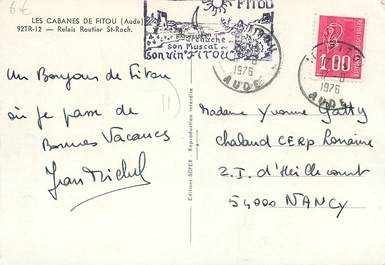 6€
LES CABANES DE FITOU (Aude)
92TR-12 — Relais Routier St-Roch.
FITOU
son Muscat
son vin "FITOU"
1976
AUDE
1976
AUDE
1,00
Un Bonjour de Fitou
où je passe de
Bonnes Vacances
Jean Michel
Editions SOFER - Reproduction interdite
Madame Yvonne
chaland CERP Lorraine
Z.I. d'Heillecourt
54000 NANCY